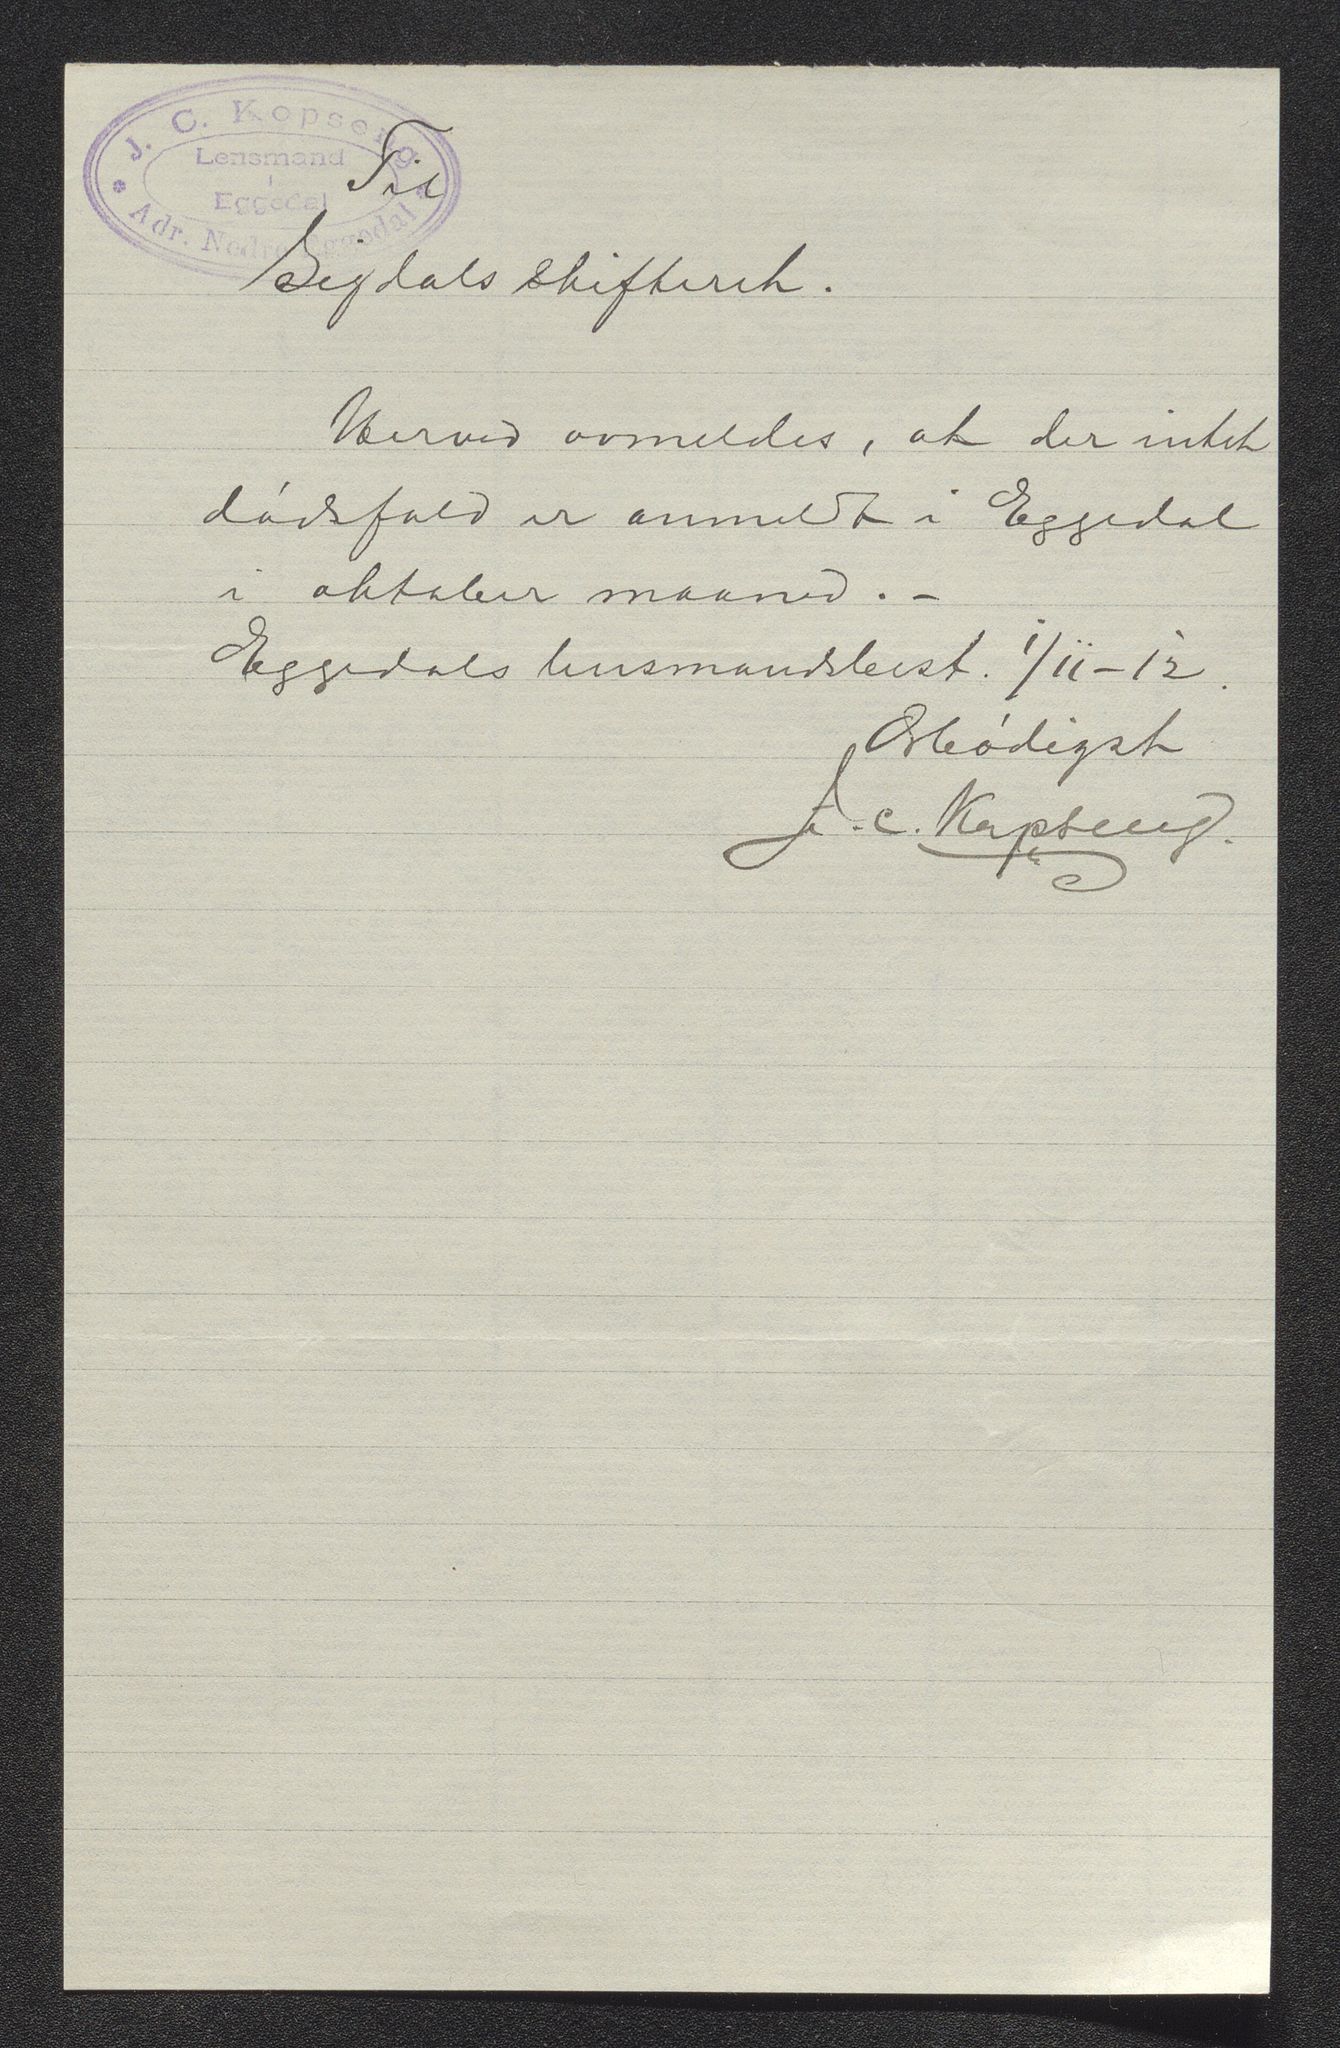 J. C. Kopseng
Lensmand
i
Eggedal
Adr. Nedre Eggedal
Til
Sigdals skifteret.
Herved avmeldes, at der intet
dødsfald er anmeldt i Eggedal
i oktober maaned. -
Eggedals lensmandsbest. 1/11-12.
Ærbødigst
J. C. Kopseng.